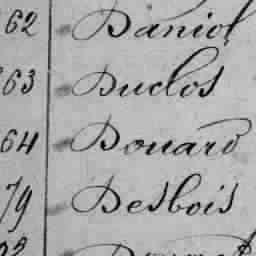 62 Daniol
63 Duclos
64 Douard
79 Desbois